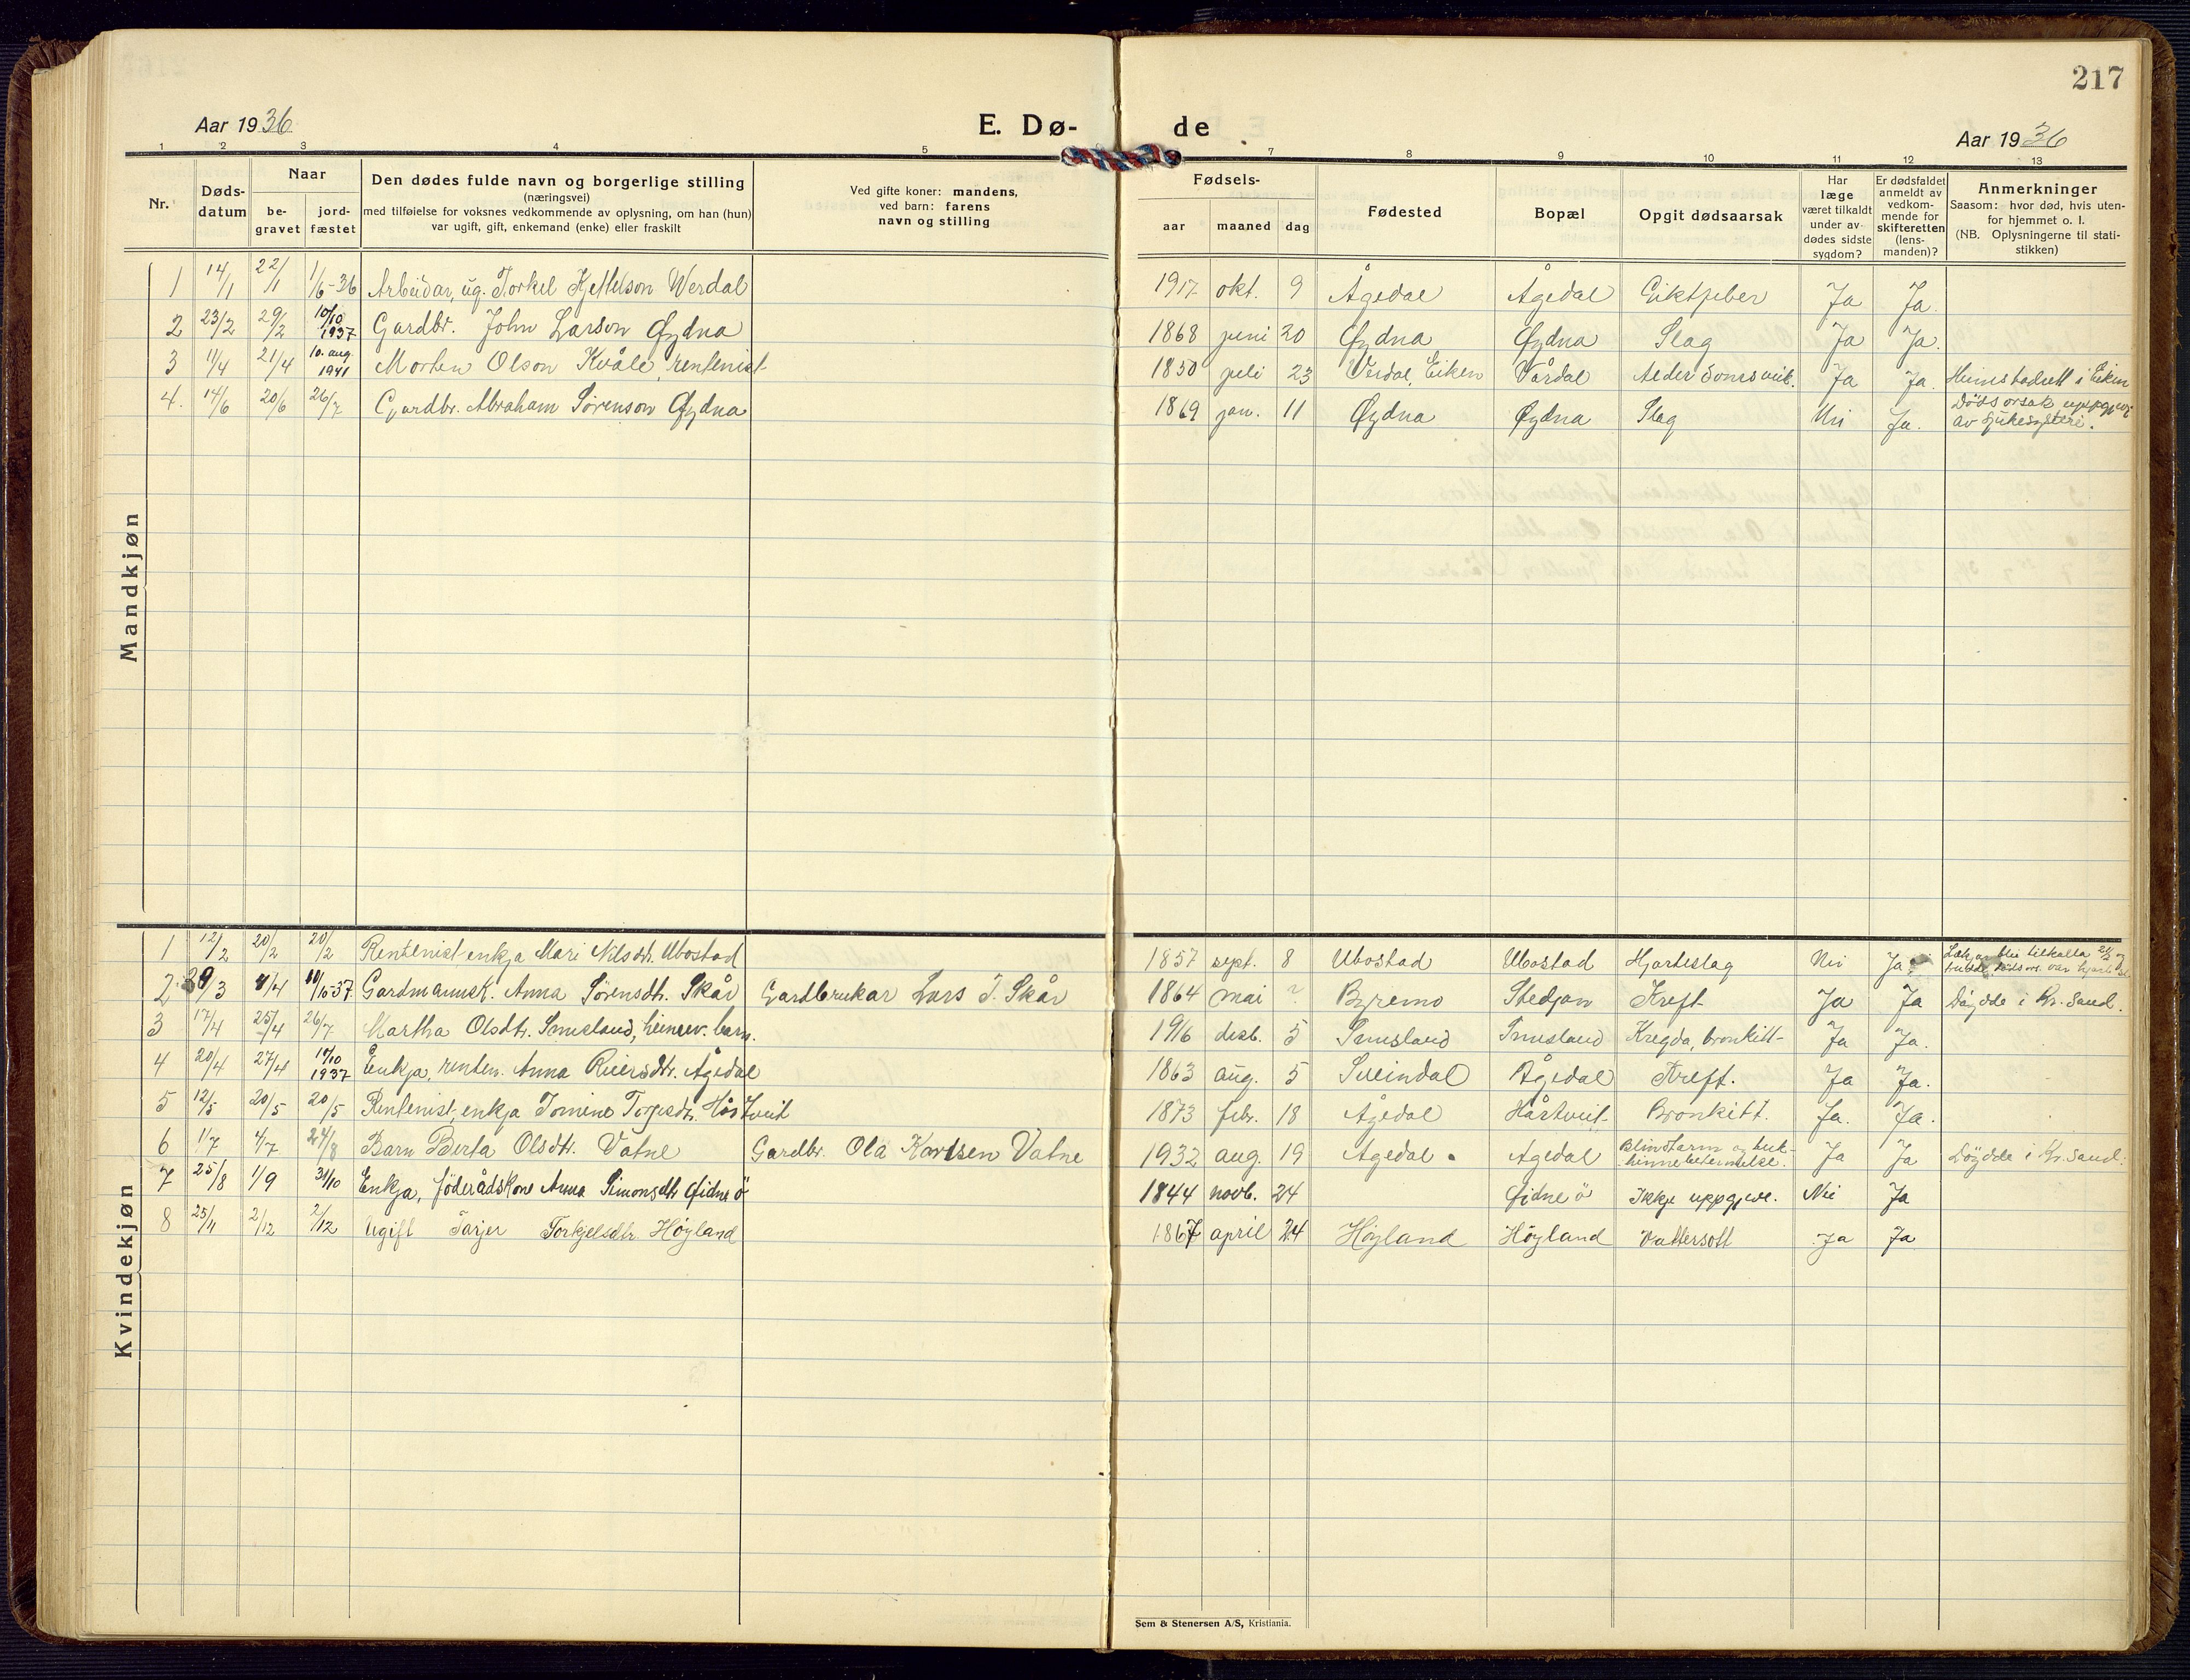 217
Aar 1936 E. Dø- de Aar 1936
1 2 3 4 5 7 8 9 10 11 12 13
Nr.
Døds-
datum
Naar
be-
gravet
jord-
fæstet
Den dødes fulde navn og borgerlige stilling
(næringsvei)
med tilføielse for voksnes vedkommende av oplysning, om han (hun)
var ugift, gift, enkemand (enke) eller fraskilt
Ved gifte koner: mandens,
ved barn: farens
navn og stilling
Fødsels-
aar maaned dag
Fødested
Bopæl
Opgit dødsaarsak
Har
læge
været tilkaldt
under av-
dødes sidste
sygdom?
Er dødsfaldet
anmeldt av
vedkom-
mende for
skifteretten
(lens-
manden)?
Anmerkninger
Saasom: hvor død, hvis uten-
for hjemmet o. l.
(NB. Oplysningerne til stati-
stikken)
Mandkjøn
1 14/1 22/1 1/6-36 Arbeidar, ug. Torkel Kjetlelson Werdal 1917 okt. 9 Ågedal Ågedal Ja Ja.
2 23/2 29/2 10/10 1937 Gardbr. John Larson Øydna 1868 juni 20 Øydna Øydna Slag Ja Ja.
3 11/4 21/4 10. aug. 1941 Morten Olson Kvåle, rentenist 1850 juli 23 Verdal, Eiken Vårdal Alderdomsveik. Ja Ja. Heimstadrett i Eiken
4. 14/6 20/6 26/7 Gardbr. Abraham Sørenson Øydna 1869 jan. 11 Øydna Øydna Slag Nei Ja. Dødsorsak uppgjeve
av sjukesyster.
Kvindekjøn
1 12/2 20/2 20/2 Rentenist enkja Mari Nilsdtr. Ubostad 1857 sept. 8 Ubostad Ubostad Hjarteslag Nei Ja.
2 29/3 4/4 10/10-37 Gardmannsk. Anna Sørensdtr. Skår Gardbrukar Lars J. Skår 1864 mai ? Byremo Stedjan Kreft Ja Ja Døydde i Kr.sand.
3 17/4 25/4 26/7 Martha Olsdtr. Smesland, heimev. barn. 1916 desb. 5 Smesland Smesland Kregda, bronkitt Ja Ja.
4 20/4 27/4 10/10 1937 Enkja, renten. Anna Reiersdtr. Ågedal 1863 aug. 5 Sveindal Ågedal Kreft. Ja Ja.
5 12/5 20/5 20/5 Rentenist, enkja Tomine Torjesdtr. Håstveit 1873 febr. 18 Ågedal Håstveit Bronkitt. Ja. Ja.
6 1/7 4/7 24/8 Barn Berta Olsdtr. Vatne Gardbr. Ola Karlsen Vatne 1932 aug. 19 Ågedal Ågedal Blindtarm og buk-
hinnebetennelse. Ja Ja Døydde i Kr.sand.
7 25/8 1/9 31/10 Enkja, föderådskone Anna Simonsdtr Øidneö 1844 novb. 24 Øidneö Ikkje uppgjeve. Nei Ja
8 25/11 2/12 2/12 Ugift Tarjer Torkjelsdtr. Høyland 1867 april 24 Høyland Høyland Vattersott Ja Ja
Sem & Stenersen A/S, Kristiania.